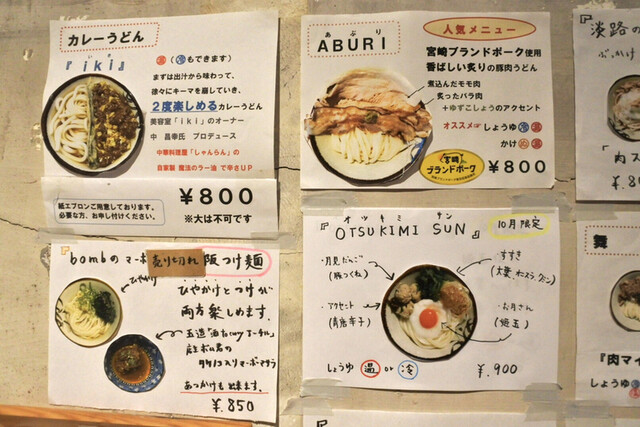 カレーうどん
『iki』
いき
温 (冷もできます)
まずは出汁から味わって、
徐々にキーマを崩していき、
2度楽しめるカレーうどん
美容室「iki」のオーナー
中 昌幸氏 プロデュース
中華料理屋「しゃんらん」の
自家製 魔法のラー油 で辛さUP
紙エプロンご用意しております。
必要な方、お申し付けください。
¥800
※大は不可です
あぶり
ABURI
人気メニュー
宮崎ブランドポーク使用
香ばしい炙りの豚肉うどん
煮込んだモモ肉
炙ったバラ肉
+ゆずこしょうのアクセント
オススメ しょうゆ 冷 温
かけ 冷 温
宮崎
ブランドポーク
¥800
『bombの マーボ
売り切れ
阪つけ麺
ひやかけ
ひやかけとつけが
両方楽しめます。
タケノコ入りマーボーマヨラ
あつかけも出来ます。
¥.850
オツキミ サン
『OTSUKIMI SUN』
10月限定
・月見だんご
(豚つくね)
・すすき
・アクセント
(青唐辛子)
・お月さん
(姫玉)
しょうゆ 温 or 冷
¥.900
淡路の
ぶっかけ
『肉マイ
しょうゆ